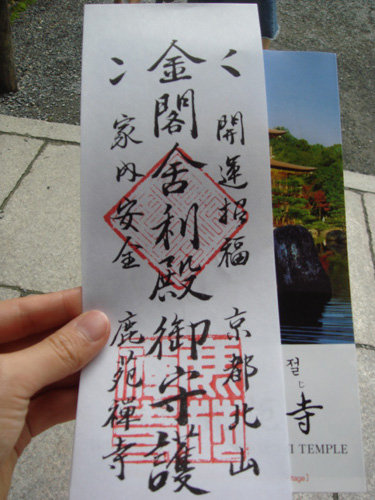 開運招福 京都北山
金閣舎利殿御守護
家内安全 鹿苑禅寺
절
じ
寺
I TEMPLE
tage